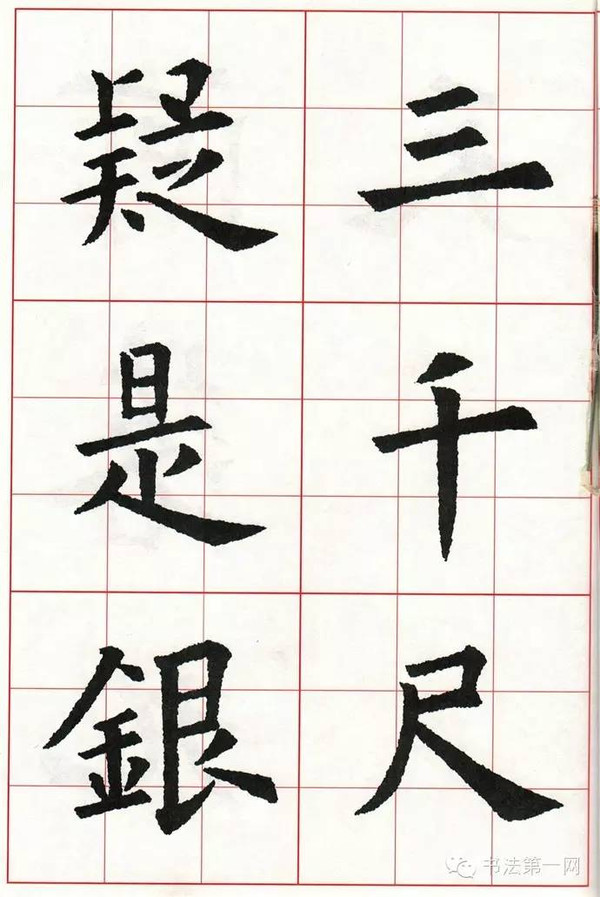 三千尺
疑是銀
书法第一网